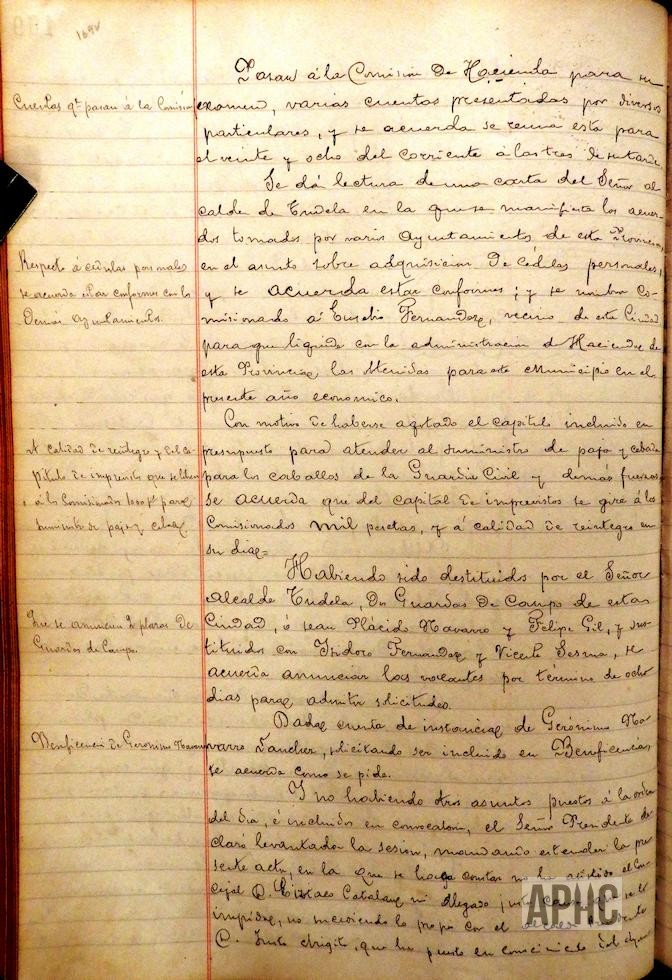 169v
Pasan á la Comision de Hacienda para su
Cuentas qe. pasan á la Comision
examen, varias cuentas presentadas por diversos
particulares, y se acuerda se reuna esta para
el veinte y ocho del corriente á las tres de su tarde.
Se dá lectura de una carta del Señor al
calde de Tudela en la que se manifiesta los acuer
dos tomados por varios Ayuntamientos de esta Provincia
Respecto á cédulas personales
se acuerda estar conformes con los
Demas Ayuntamientos.
en el asunto sobre adquisicion de Cédulas personales
y se acuerda estar conformes; y se nombra Co-
misionado á Eusebio Fernandez, vecino de esta Ciudad
para que liquide con la administracion de Hacienda de
esta Provincia, las obtenidas para este Municipio en el
presente año economico.
Con motivo de haberse agotado el capitulo incluido en
A calidad de reintegro y del ca-
pitulo de imprevistos que se libren
á los Comisionados 1000 pts para
suministro de paja y cebada
presupuesto para atender al suministro de paja y cebada
para los caballos de la Guardia Civil y demás fuerzas
se acuerda que del capital de imprevistos se gire á los
Comisionados mil pesetas, y á calidad de reintegro en
su dia=
Habiendo sido destituidos por el Señor
Alcalde Tudela, Dos Guardas de Campo de esta
Que se anuncien 2 plazas de
Guardas de Campo.
Ciudad, ó sean Plácido Navarro y Felipe Gil, y sus-
tituidos con Isidoro Fernandez y Vicente Sesma, se
acuerda anunciar las vacantes por término de ocho
dias para admitir solicitudes.
Dada cuenta de instancia de Gerónimo Na-
Beneficencia de Geronimo Navarro
varro Sanchez, solicitando ser incluido en Beneficencia
se acuerda como se pide.
Y no habiendo otros asuntos puestos á la orden
del dia, é incluidos en convocatoria, el Señor Presidente de-
claró levantada la sesion, mandando estender la pre
sente acta, en la que se haga constar no ha asistido el Con-
cejal D. Catalan ni alegado justa causa que se lo
impida, no haciendo lo propio con el
D. Justo, que ha puesto en conocimiento
APHC